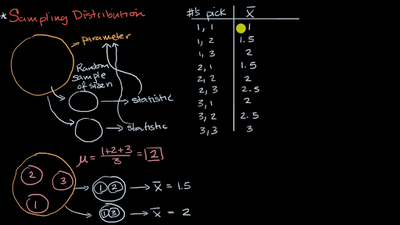 * Sampling Distribution
parameter
Random
sample
of size n
statistic
statistic
μ = 1+2+3 / 3 = 2
2
3
1
1 2 → x̄ = 1.5
1 3 → x̄ = 2
#'s pick x̄
1, 1 1
1, 2 1.5
1, 3 2
2, 1 1.5
2, 2 2
2, 3 2.5
3, 1 2
3, 2 2.5
3, 3 3